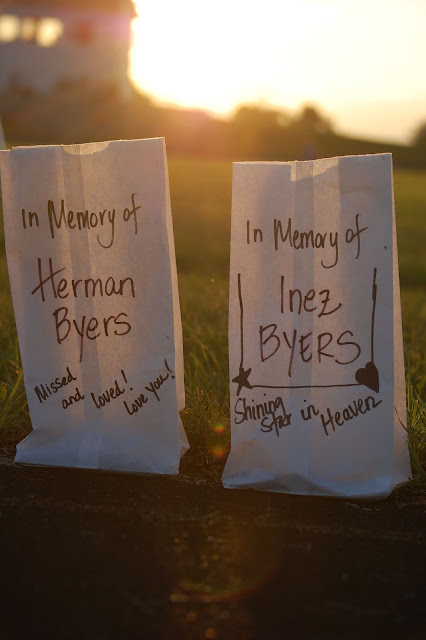 In Memory of
Herman
Byers
Missed
and loved!
love you!
In Memory of
Inez
BYERS
Shining
star in Heaven